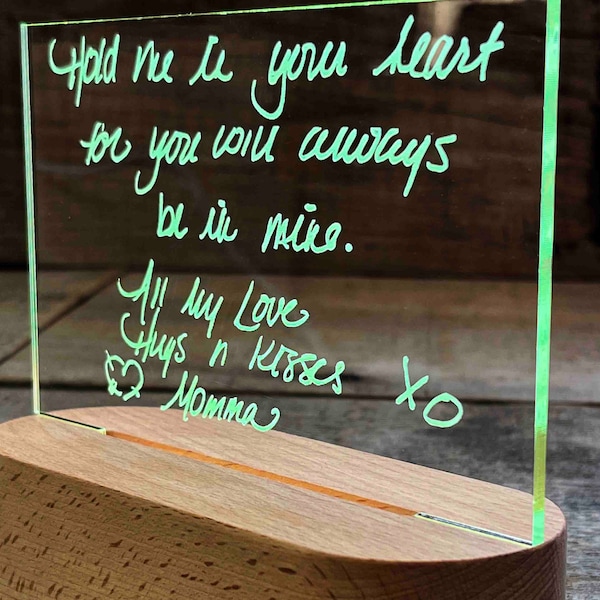 Hold me in your heart
for you will always
be in mine.
All My Love
Hugs n Kisses
Momma
XO